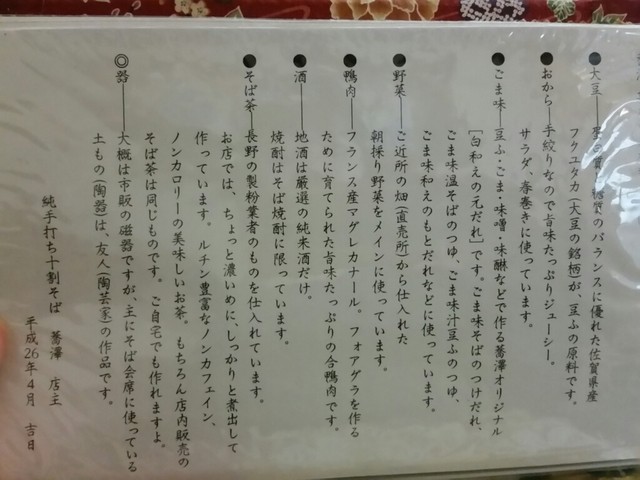 ●大豆――蛋白質・糖質のバランスに優れた佐賀県産
フクユタカ(大豆の銘柄)が、豆ふの原料です。
●おから――手絞りなので旨味たっぷりジューシー。
サラダ、春巻きに使っています。
●ごま味――豆ふ・ごま・味噌・味醂などで作る蕎澤オリジナル
[白和えの元だれ]です。ごま味そばのつけだれ、
ごま味温そばのつゆ、ごま味汁豆ふのつゆ、
ごま味和えのもとだれなどに使っています。
●野菜――ご近所の畑(直売所)から仕入れた
朝採り野菜をメインに使っています。
●鴨肉――フランス産マグレカナール。フォアグラを作る
ために育てられた旨味たっぷりの合鴨肉です。
●酒――地酒は厳選の純米酒だけ。
焼酎はそば焼酎に限っています。
●そば茶――長野の製粉業者のものを仕入れています。
お店では、ちょっと濃いめに、しっかりと煮出して
作っています。ルチン豊富なノンカフェイン、
ノンカロリーの美味しいお茶。もちろん店内販売の
そば茶は同じものです。ご自宅でも作れますよ。
◎器――大概は市販の磁器ですが、主にそば会席に使っている
土もの(陶器)は、友人(陶芸家)の作品です。
純手打ち十割そば 蕎澤 店主
平成26年4月 吉日